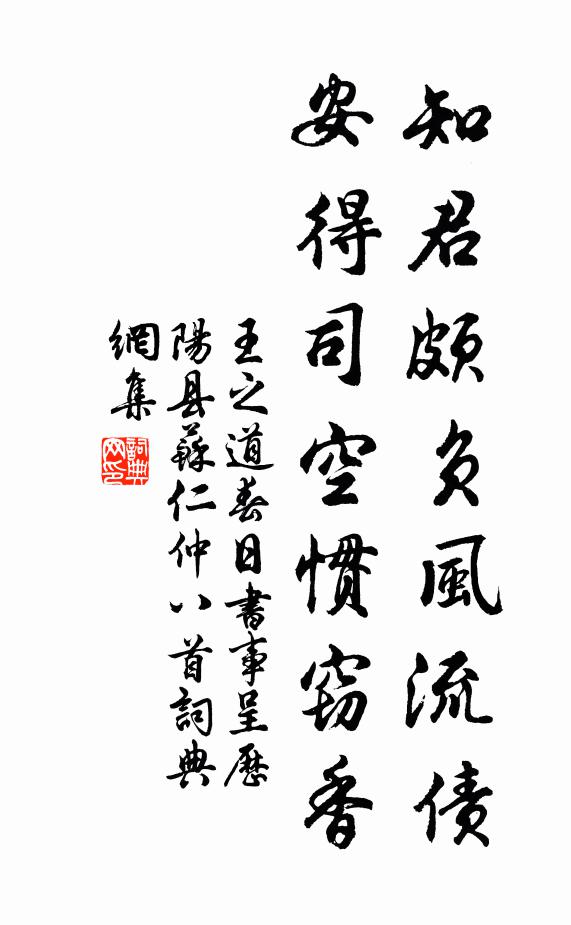 知君頗負風流債
安得司空慣窃香
王之道春日書事呈歷
陽县蘇仁仲八首詞典
網集
詞典
网印